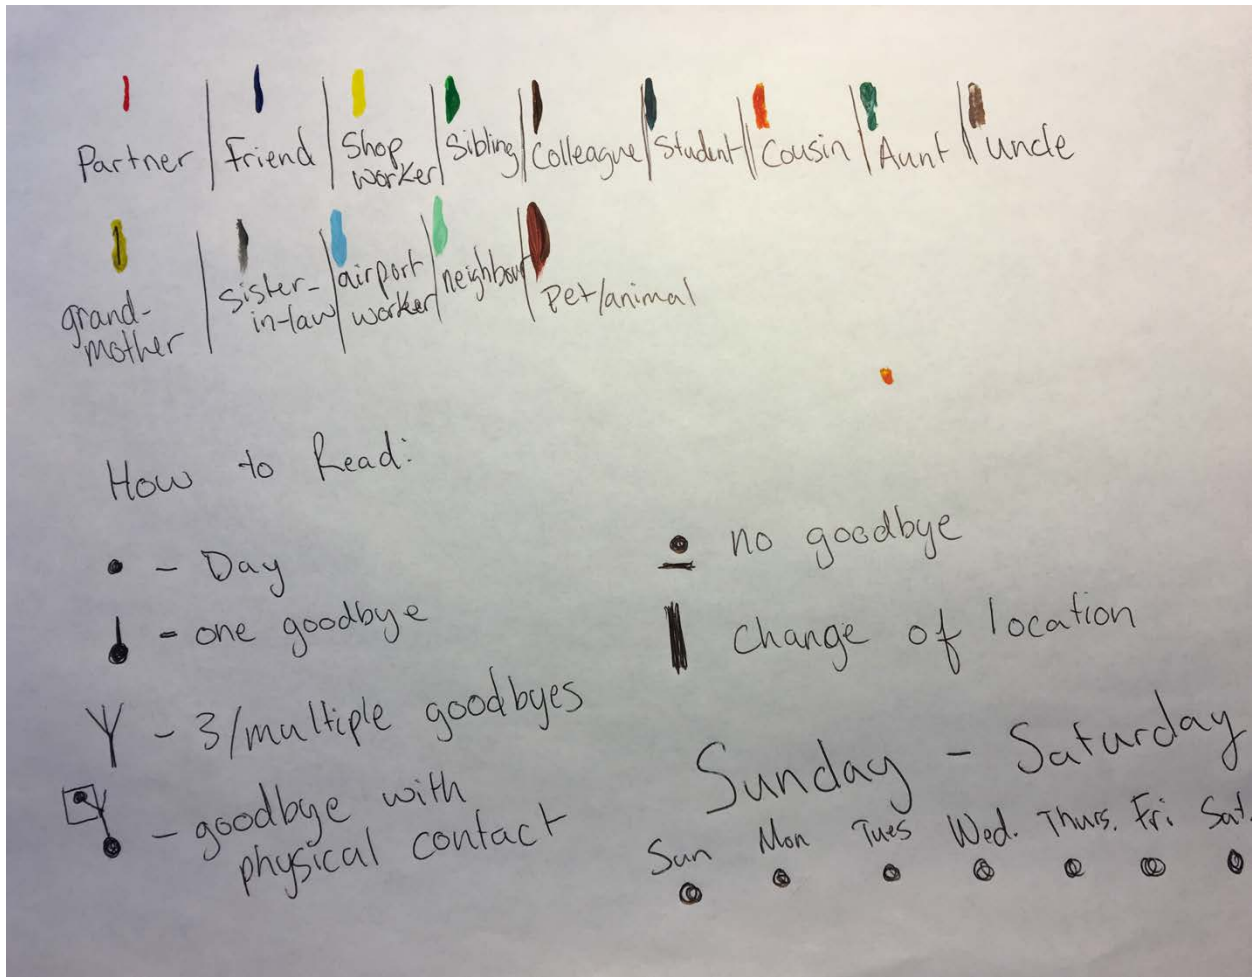 Partner | Friend | Shop worker | Sibling | Colleague | Student | Cousin | Aunt | Uncle
grand-mother | sister-in-law | airport worker | neighbour | Pet/animal
How to Read:
• - Day
- one goodbye
- 3/multiple goodbyes
- goodbye with
physical contact
no goodbye
change of location
Sunday - Saturday
Sun Mon Tues Wed. Thurs. Fri Sat.